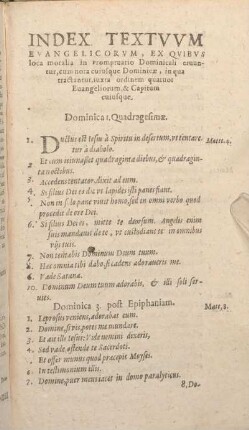 INDEX TEXTVVM
EVANGELICORVM, EX QVIBVS
loca moralia in Promptuario Dominicali eruun-
tur, cum nota cuiusque Dominicæ, in qua
tractantur, iuxta ordinem quatuor
Euangeliorum, & Capitum
cuiusque.
Dominica 1. Quadragesimæ.
1. Ductus est Iesus à Spiritu in desertum, vt tentare- Matt. 4.
tur à diabolo.
2. Et cum ieiunasset quadraginta diebus, & quadragin-
ta noctibus.
3. Accedens tentator, dixit ad eum.
4. Si filius Dei es dic vt lapides isti panes fiant.
5. Non in solo pane viuit homo, sed in omni verbo quod
procedit de ore Dei.
6. Si filius Dei es, mitte te deorsum. Angelis enim
suis mandauit de te, vt custodiant te in omnibus
vijs tuis.
7. Non tentabis Dominum Deum tuum.
8. Hæc omnia tibi dabo, si cadens adoraueris me.
9. Vade Satana.
10. Dominum Deum tuum adorabis, & illi soli ser-
uies.
Dominica 3. post Epiphaniam. Matt. 8.
1. Leprosus veniens, adorabat eum.
2. Domine, si vis, potes me mundare.
3. Et ait illi Iesus: Vide nemini dixeris,
4. Sed vade, ostende te Sacerdoti.
5. Et offer munus quod præcepit Moyses.
6. In testimonium illis.
7. Domine, puer meus iacet in domo paralyticus.
8. Do-